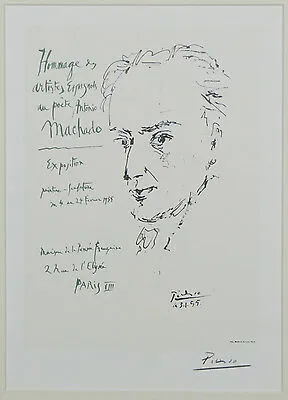 Hommage des
artistes Espagnols
au poète Antonio
Machado
Exposition
peinture - sculpture
du 4 au 24 Février 1955
Maison de la Pensée Française
2 Rue de l'Elysée
PARIS VIII
Picasso
3.1.55.
Picasso